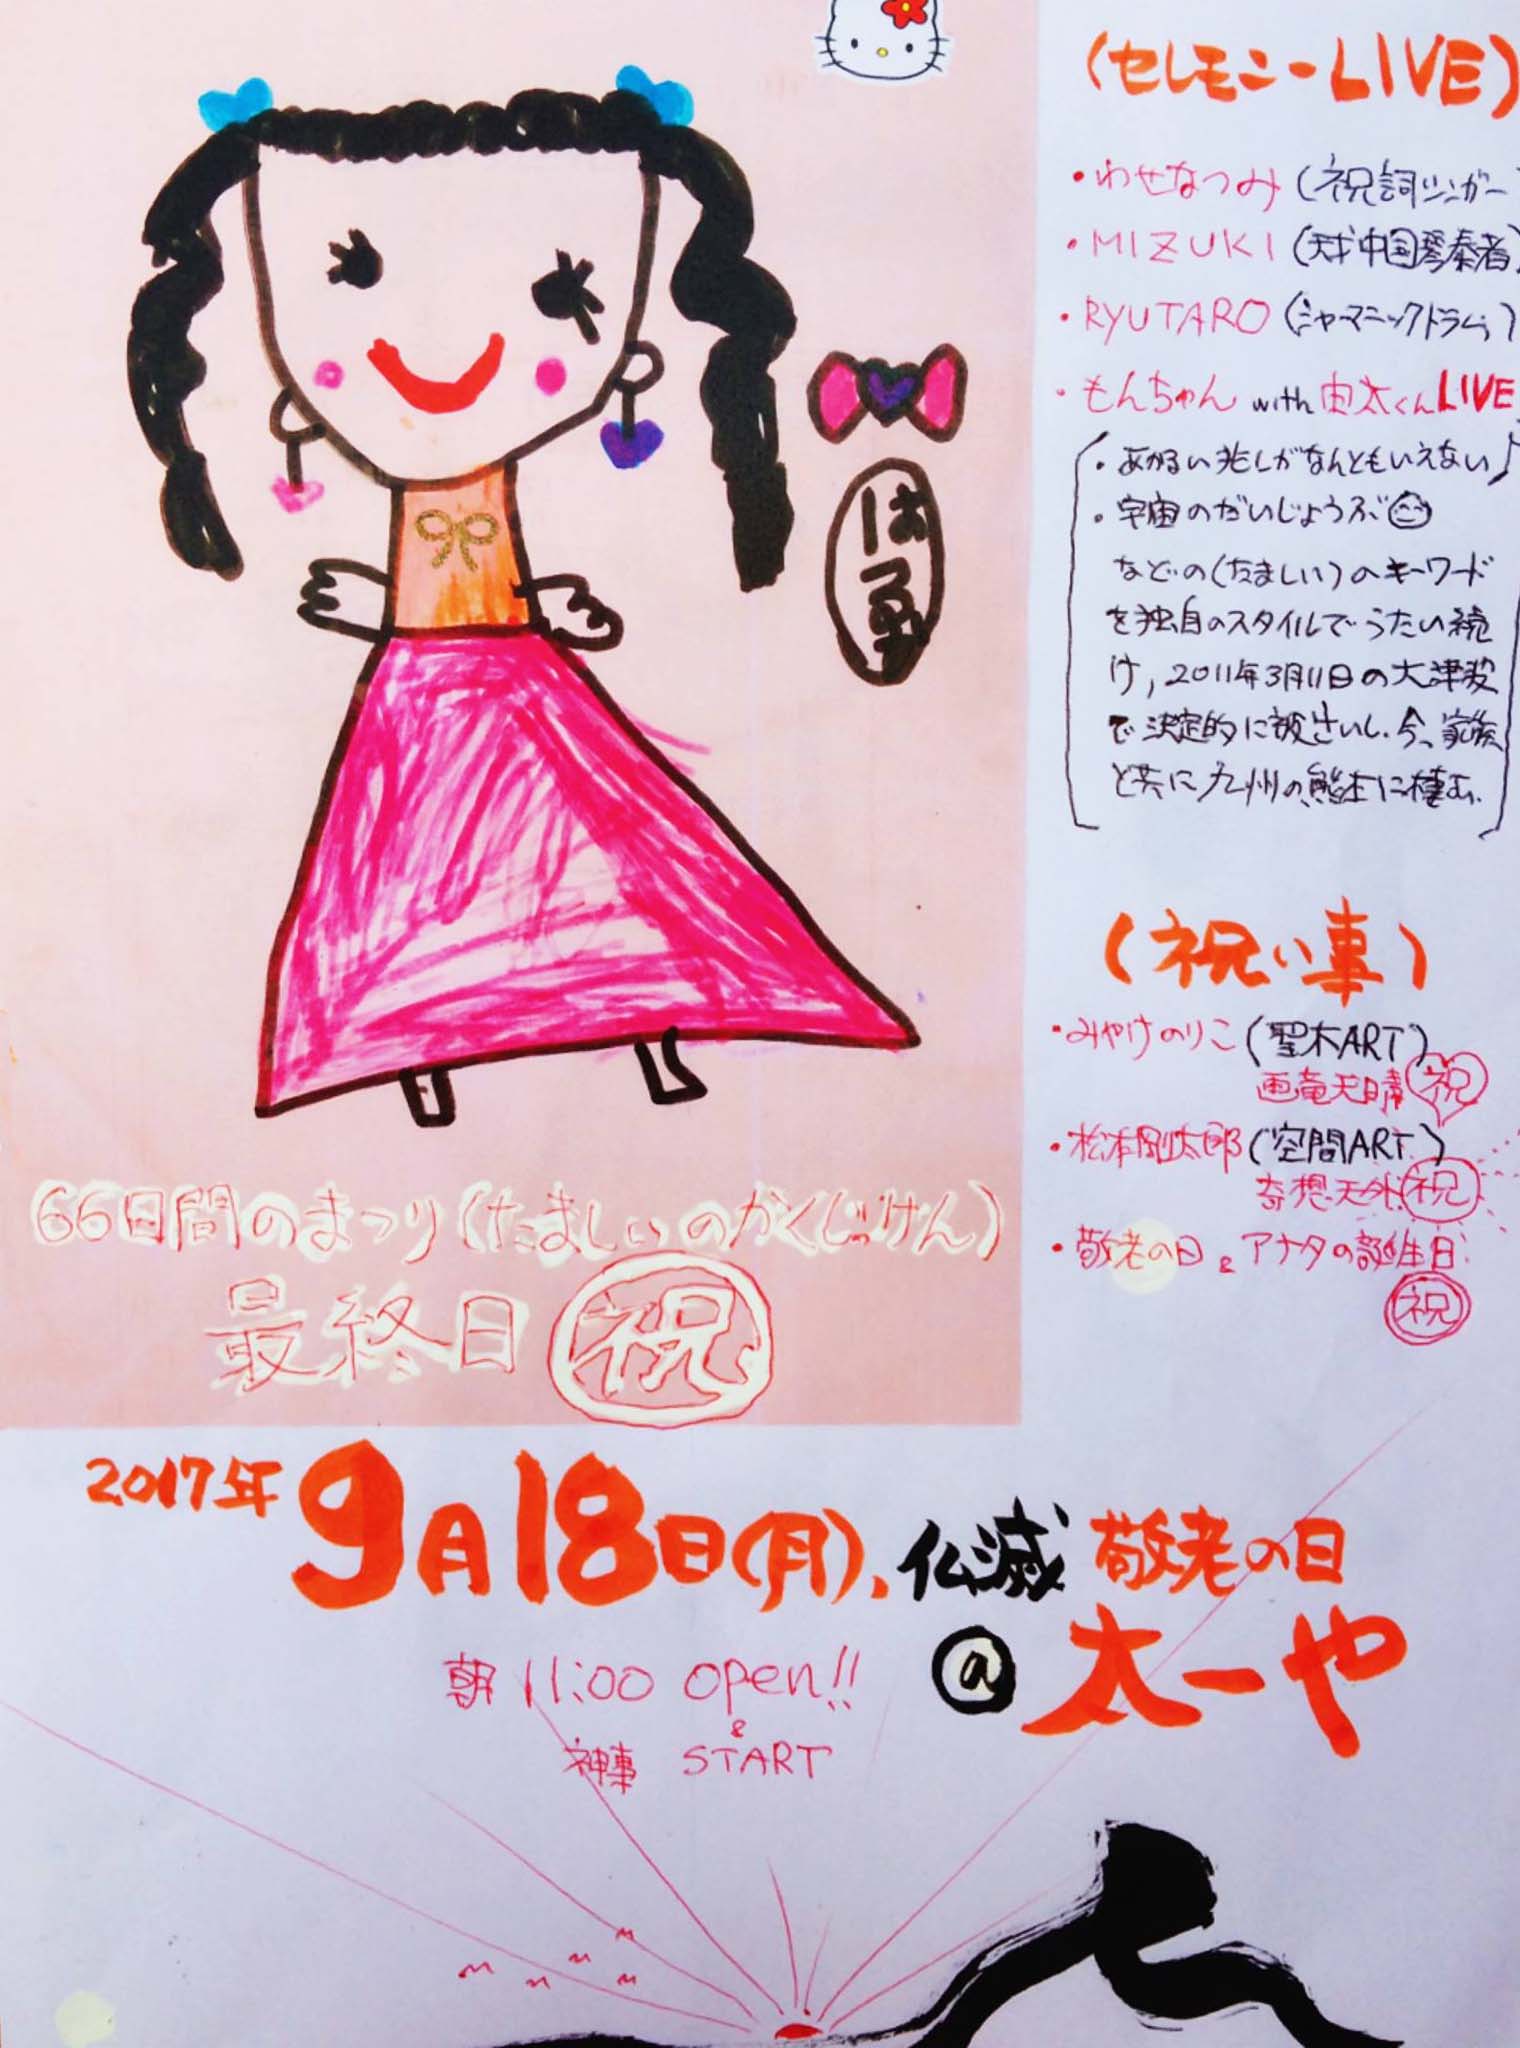 (セレモニーLIVE)
・わせなつみ(祝詞シンガー
・MIZUKI(天才中国琴奏者)
・RYUTARO(シャーマニックドラム)
・もんちゃん with 宙太くんLIVE
・あかるい兆しがなんともいえない♪
・宇宙のだいじょうぶ
などの(たましい)のキーワード
を独自のスタイルでうたい続
け,2011年3月11日の大津波
で決定的に被さいし.今、家族
と共に九州の熊本に棲む.
はる
(祝い事)
・みやけのりこ(聖木ART)
画竜天晴 祝
・松本剛太郎(空間ART)
奇想天外 祝
・敬老の日&アナタの誕生日
祝
66日間のまつり(たましいのかくじっけん)
最終日 祝
2017年9月18日(月)、仏滅 敬老の日
@太一や
朝 11:00 open!!
&
神事 START